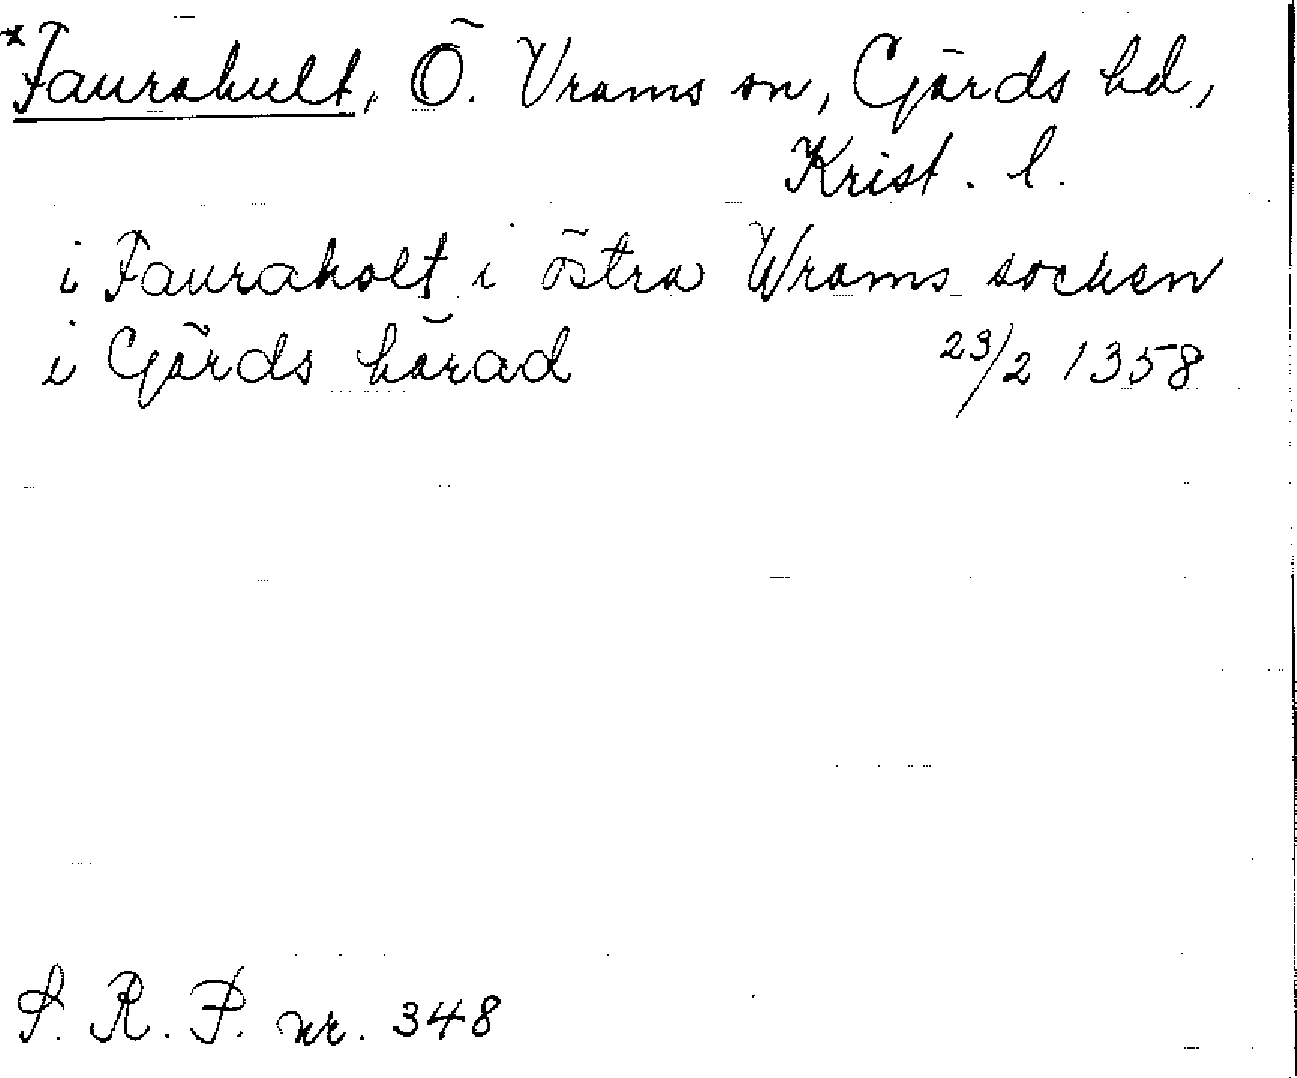 *Faurahult, Ö. Vrams sn, Gärds hd,
Krist. l.
i Fauraholt i östra Wrams socken
i Gärds härad 23/2 1358
S. R. P. nr. 348